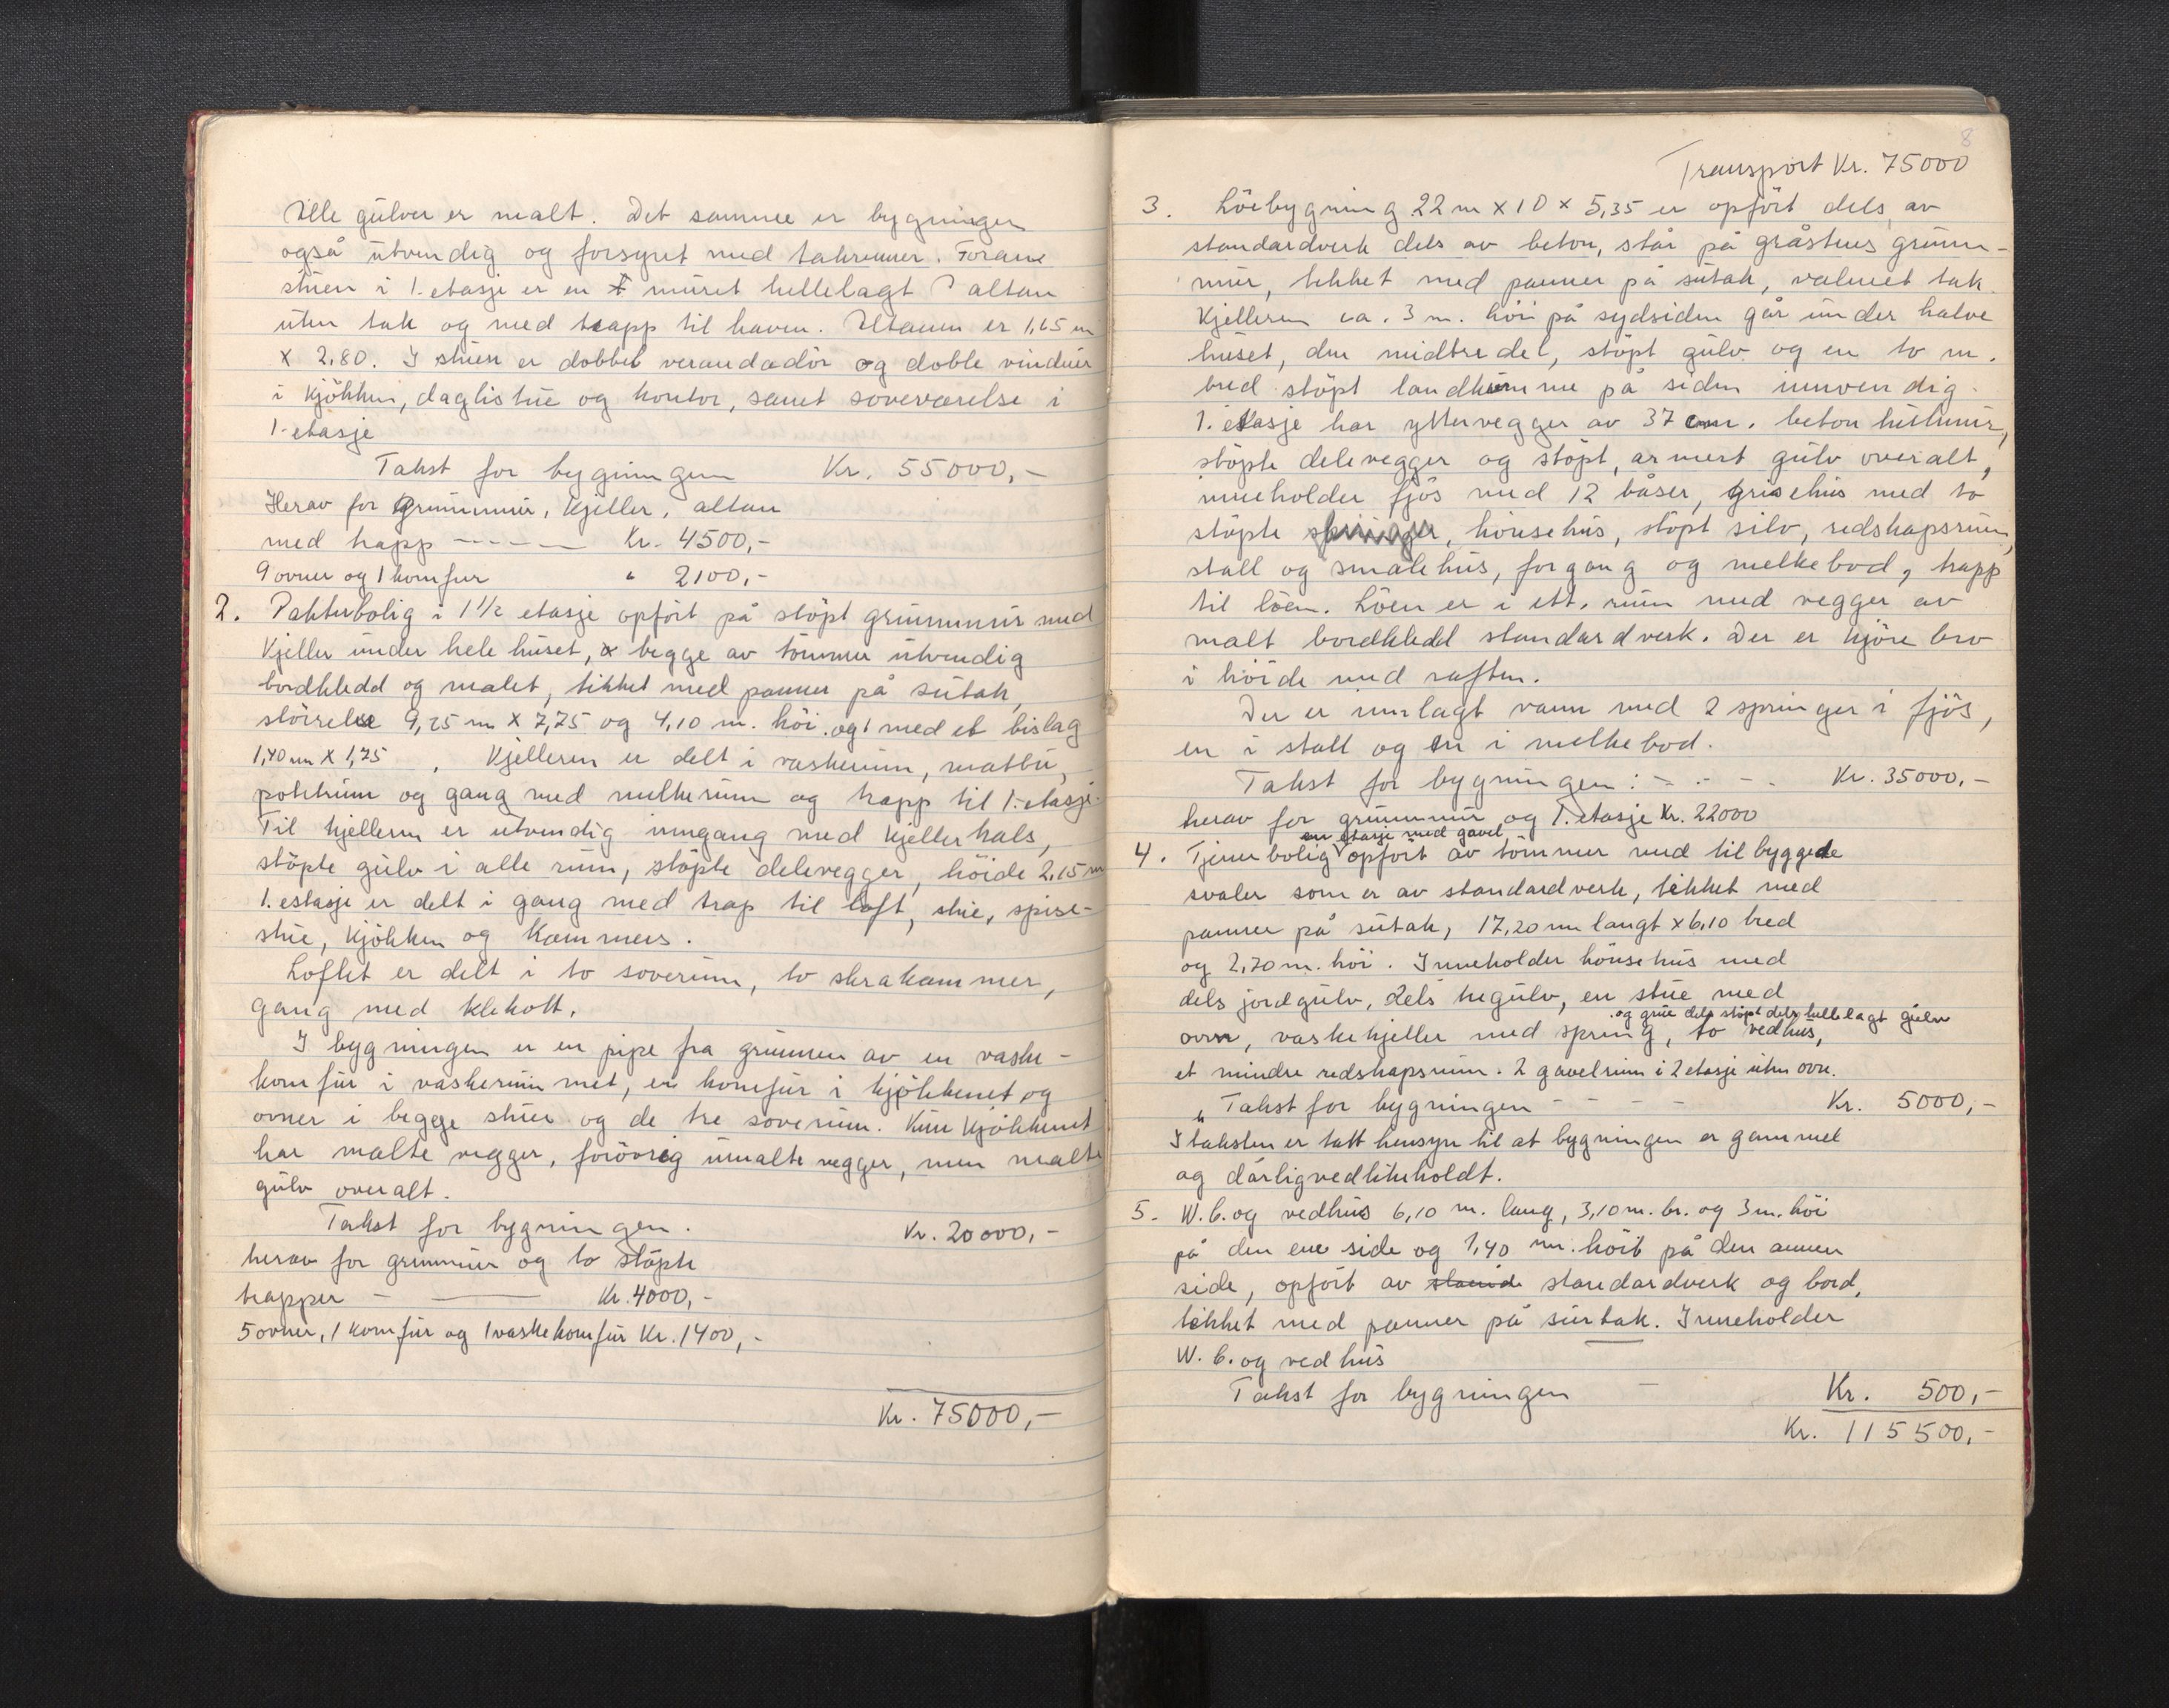 Alle gulver er malt. Det samme er bygningen
også utvendig og forsynet med takrenner. Foran
stuen i 1. etasje er en muret hellelagt altan
uten tak og med trapp til haven. Altanen er 1,65 m
x 2,80. I stuen er dobbel verandadör og doble vinduer
i kjökken, daglistue og kontor, samt soveværelse i
1. etasje
Takst for bygningen Kr. 55000,-
Herav for grunnmur, kjeller, altan
med trapp - - - - Kr. 4500,-
9 ovner og 1 komfur " 2100,-
2. Pakterbolig i 1 1/2 etasje opfört på stöpt grunnmur med
kjeller under hele huset, begge av tömmer utvendig
bordkledd og malet, tekket med panner på sutak,
störrelse 9,25 m x 7,75 og 4,10 m. höi og med et bislag
1,40 m x 1,75, Kjelleren er delt i vaskerum, matbu,
potetrum og gang med melkerum og trapp til 1. etasje.
Til kjelleren er utvendig inngang med kjellerhals,
stöpte gulv i alle rum, stöpte delevegger, höide 2,15 m
1. estasje er delt i gang med trap til loft, stue, spise-
stue, kjökken og kammers.
Loftet er delt i to soverum, to skrakammer,
gang med klekott.
I bygningen er en pipe fra grunnen av en vaske-
komfur i vaskerummet, en komfur i kjökkenet og
ovner i begge stuer og de tre soverum. Kun kjökkenet
har malte vegger, forövrig umalte vegger, men malte
gulv overalt.
Takst for bygningen. Kr. 20000,-
herav for grunnmur og to stöpte
trapper - — Kr. 4000,-
5 ovner, 1 komfur og 1 vaskekomfur Kr. 1400,-
Kr. 75000,-
8
Transport Kr. 75000
3. Löebygning 22 m x 10 x 5,35 er opfört dels av
standardverk dels av beton, står på gråstens grunn-
mur, tekket med panner på sutak, valmet tak.
Kjelleren ca. 3 m. höi på sydsiden går under halve
huset, den midtre del, stöpt gulv og en to m.
bred stöpt landkumme på siden innvendig.
1. etasje har yttervegger av 37 cm. beton hulmur,
stöpte delevegger og stöpt, armert gulv overalt,
inneholder fjös med 12 båser, grisehus med to
stöpte, hönsehus, stöpt silo, redskapsrum,
stall og smalehus, forgang og melkebod, trapp
til löen. Löen er i ett. rum med vegger av
malt bordkledd standardverk. Der er kjöre bro
i höide med raften.
Der er innlagt vann med 2 springer i fjös,
en i stall og en i melkebod.
Takst for bygningen: - .. - - Kr. 35000,-
herav for grunnmur og 1. etasje Kr. 22000
en etasje med gavel
4. Tjenerbolig opfört av tömmer med tilbyggede
svaler som er av standardverk, tekket med
panner på sutak, 17,20 m langt x 6,10 bred
og 2,70 m. höi. Inneholder hönsehus med
dels jordgulv, dels tregulv, en stue med
og grue dels stöpt dels hellelagt gulv
ovn, vaskekjeller med spring, to vedhus,
et mindre redskapsrum. 2 gavelrum i 2 etasje uten ovn.
" Takst for bygningen - - - - Kr. 5000,-
I taksten er tatt hensyn til at bygningen er gammel
og dårligvedlikeholdt.
5. W.C. og vedhus 6,10 m. lang, 3,10 m. br. og 3 m. höi
på den ene side og 1,40 m. höit på den annen
side, opfört av standardverk og bord,
tekket med panner på surtak. Inneholder
W.C. og vedhus
Takst for bygningen — Kr. 500,-
Kr. 115500,-